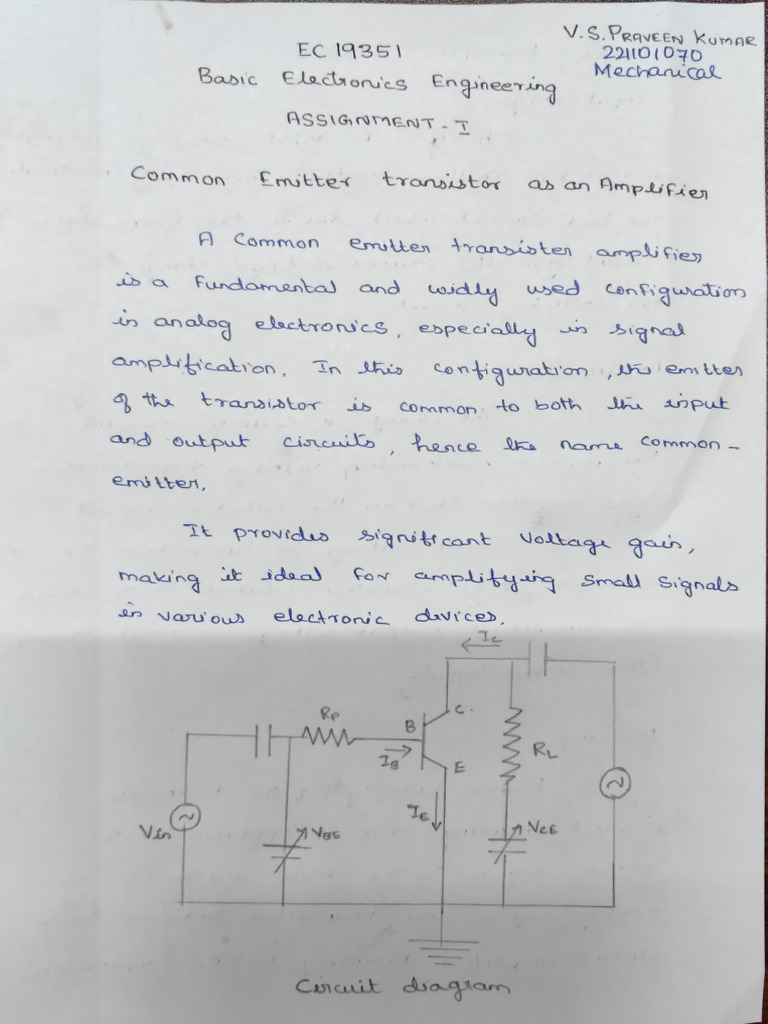 V.S. PRAVEEN KUMAR
EC 19351
221101070
Mechanical
Basic Electronics Engineering
ASSIGNMENT - I
Common Emitter transistor as an Amplifier
A Common emitter transister amplifier
is a fundamental and widly used configuration
in analog electronics, especially in signal
amplification. In this configuration, the emitter
of the transistor is common to both the input
and output circuits, hence the name common-
emitter.
It provides significant voltage gain,
making it ideal for amplifying small signals
in various electronic devices.
Ic
RP
B
C
IB
E
RL
IE
Vin
VBE
VCE
Circuit diagram